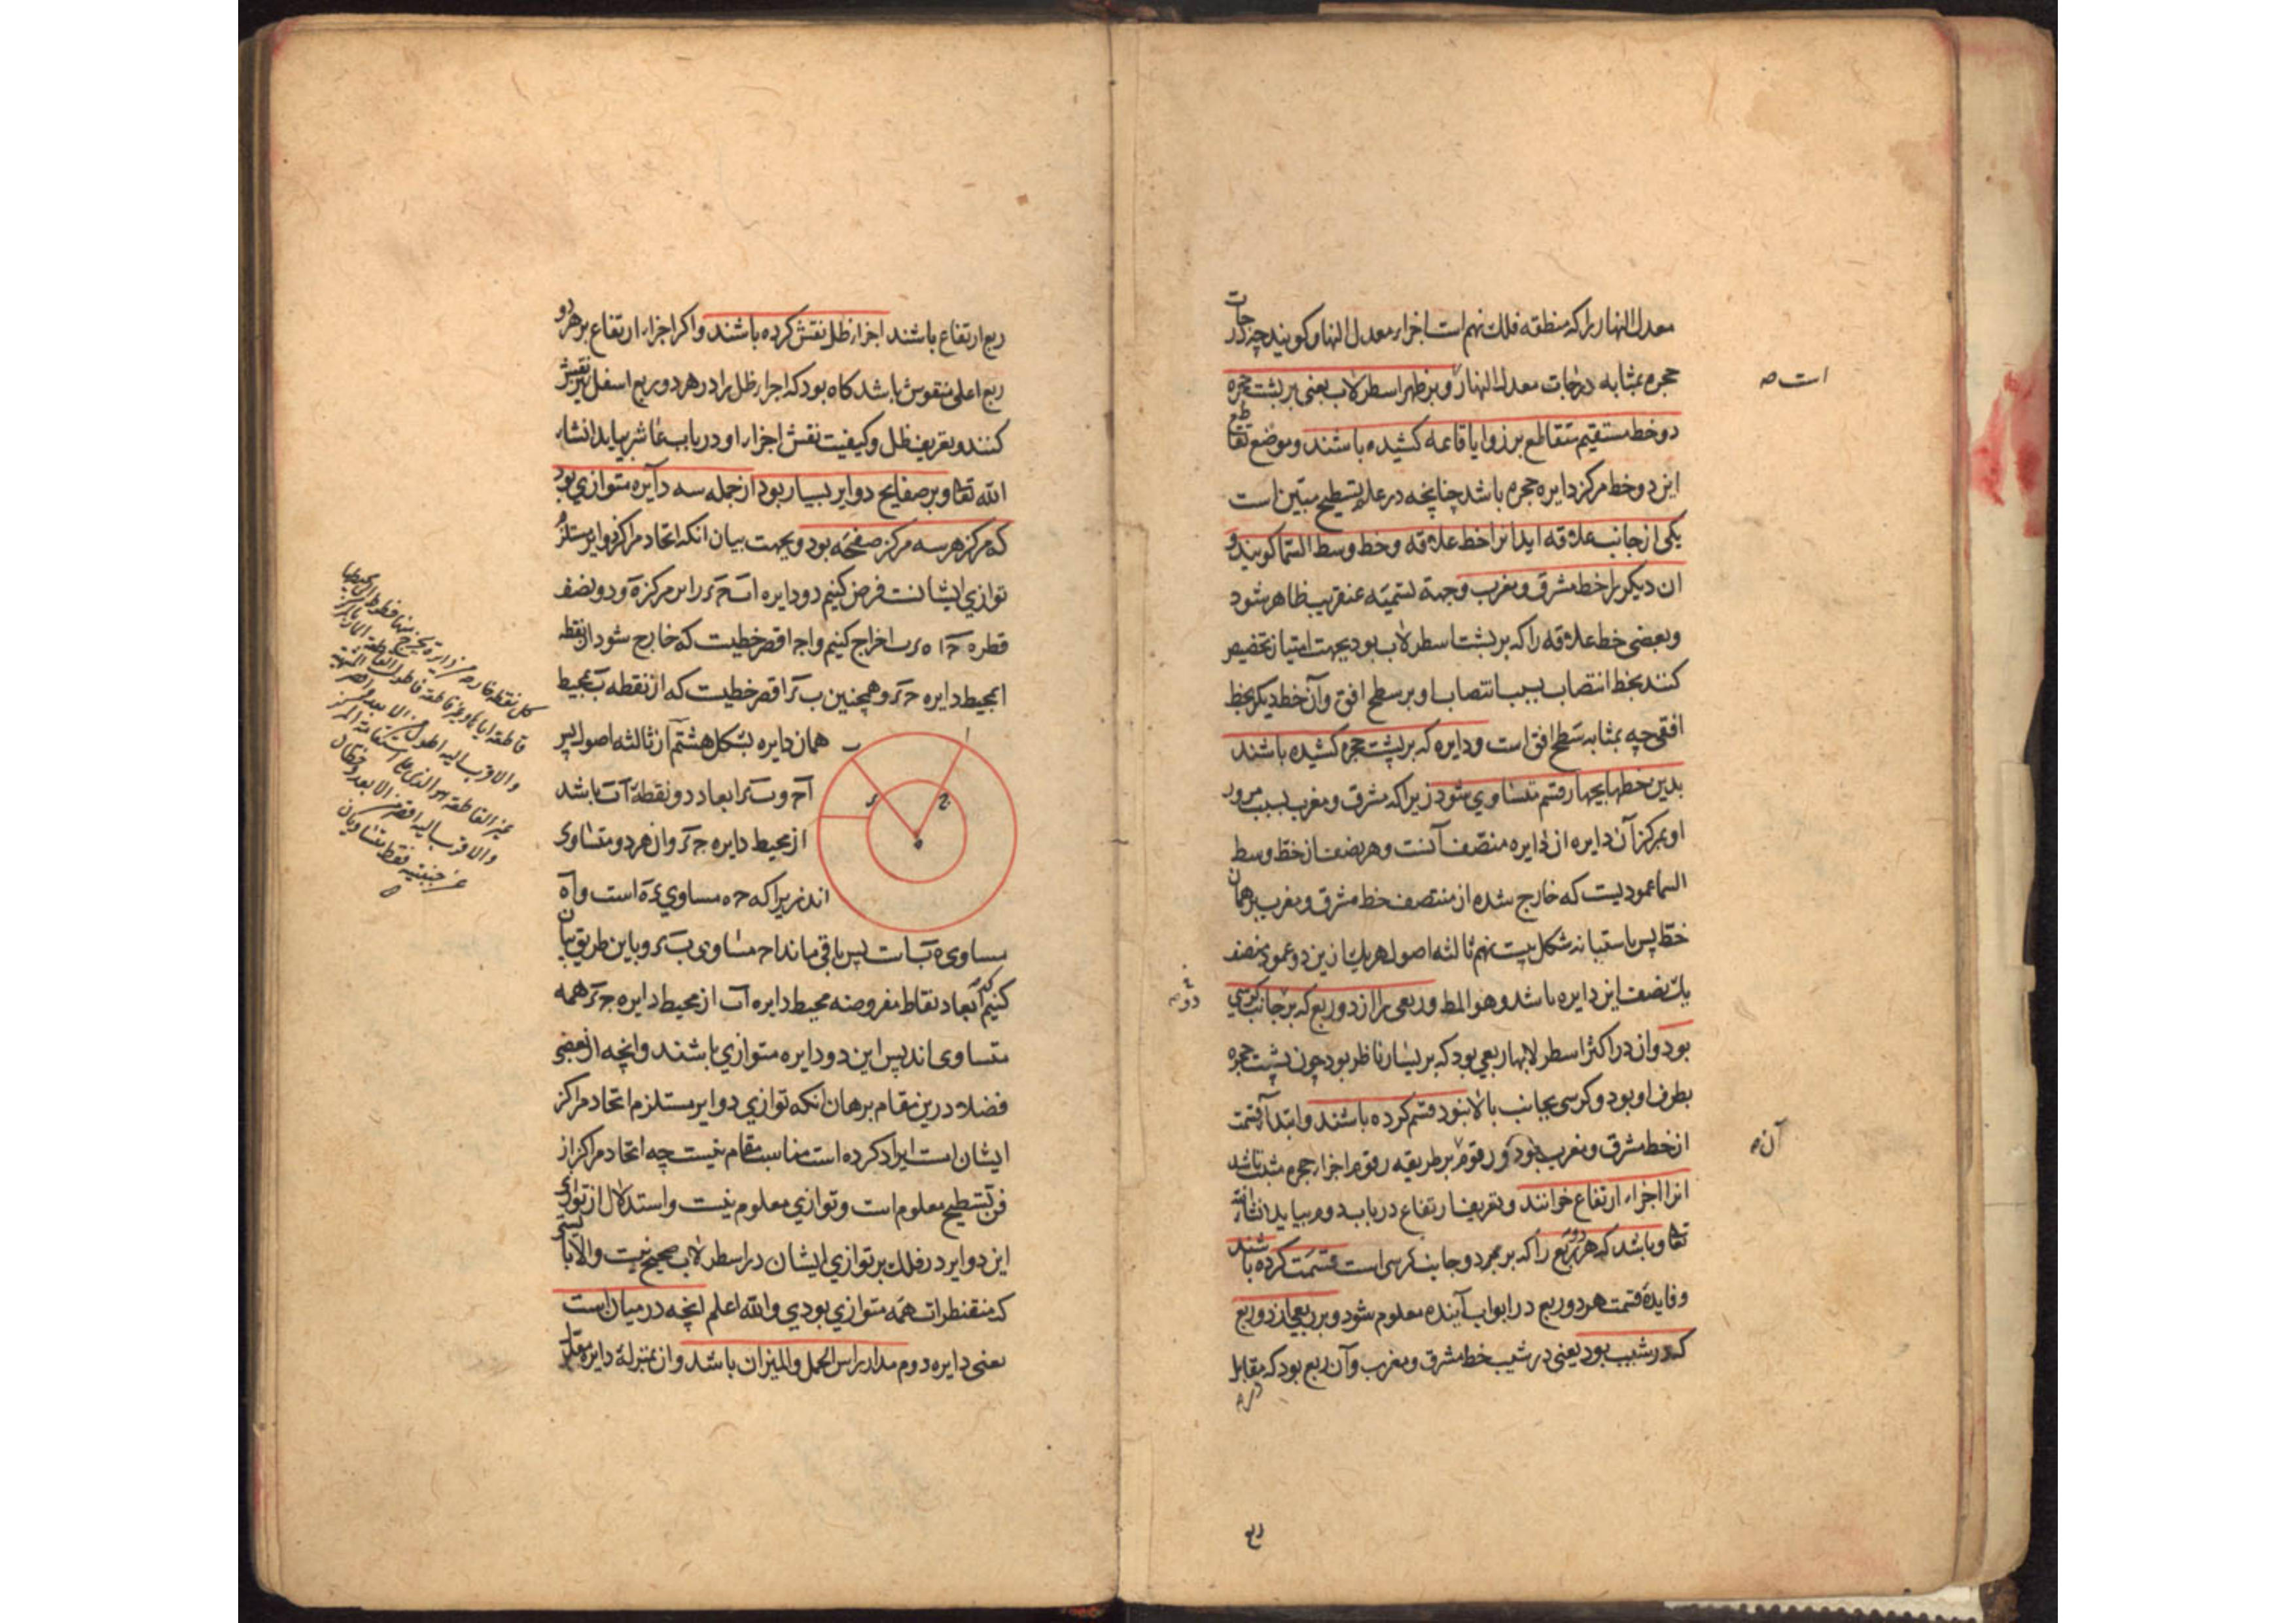 معدل النهار را که منطقه فلک نهم است اجزاء معدل النهار کویند چه درجات
حجره بمثابه درجات معدل النهار و بر ظهر اسطرلاب یعنی بر پشت حجره
است صه
دو خط مستقیم متقاطع بر زوایا قائمه کشیده باشند و موضع تقاطع
این دو خط مرکز دایره حجره باشد چنانچه در علم تسطیح مبین است
یکی از جانب علاقه اید انرا خط علاقه و خط وسط السما کویند و
ان دیکر را خط مشرق و مغرب و جهة تسمیه عنقریب ظاهر شود
و بعضی خط علاقه را که بر پشت اسطرلاب بود بجهت امتیاز تخصیص
کنند بخط انتصاب بسبب انتصاب او بر سطح افق و آن خط دیکر بخط
افقی چه بمثابه سطح افق است و دایره که بر پشت حجره کشیده باشند
بدین خطها بچهار قسم متساوی شود زیرا که مشرق و مغرب بسبب مرور
او بمرکز آن دایره ان دایره منصف آنست و هر نصف از خط وسط
السما عمودیست که خارج شده از منتصف خط مشرق و مغرب بر همان
خط پس باستبانه شکل بیست نهم ثالثه اصول هریک ازین دو عمود منصف
یک نصف این دایره باشد و هو المط و ربعی را از دو ربع که بر جانب کرسی
بود وان در اکثر اسطرلابها ربعی بود که بر یسار ناظر بود چون پشت حجره
بطرف او بود و کرسی بجانب بالا بنود قسم کرده باشند و ابتدآ قسمت
از خط مشرق و مغرب بود و رقوم بر طریقه رقوم اجزاء حجره مثبت باشد
آن صه
انرا اجزاء ارتفاع خوانند و تعریف ارتفاع در باب دوم بیاید انشاء الله
تعا و باشد که هر دو ربع را که بر هر دو جانب کرسی است قسمت کرده باشند
و فایدۀ قسمت هر دو ربع در ابواب آینده معلوم شود و بر ربعی از دو ربع
که در شیب بود یعنی در شیب خط مشرق و مغرب و آن ربع بود که مقابل
ربع
ربع ارتفاع باشند اجزاء ظل نقش کرده باشند و اکر اجزاء ارتفاع بر هر دو
ربع اعلی منقوش باشد کاه بود که اجزاء ظل را در هر دو ربع اسفل نیز نقش
کنند و تعریف ظل و کیفیت نقش اجزاء او در باب عاشر بیاید انشاء
الله تعا و بر صفایح دوایر بسیار بود از جمله سه دآیره متوازی بود
که مرکز هر سه مرکز صفحه بود و بجهت بیان انکه اتحاد مراکز دوایر مستلزم
توازی ایشانست فرض کنیم دو دایره اب حر را بر مرکز ه و دو نصف
قطر ه ح ا ه ر ب اخراج کنیم و اح اقصر خطیست که خارج شود از نقطه
ا بمحیط دایره حر و همچنین ب ر اقصر خطیست که از نقطه ب بمحیط
همان دایره بشکل هشتم از ثالثه اصول پس
اح و ب ر ابعاد دو نقطۀ اب باشد
از محیط دایره حر وان هر دو متساوی
اند زیرا که ح ه مساوی ر ه است و اه
مساوی ه ب است پس باقی ماند اح مساوی ب ر و باین طریق بیان
کنیم که ابعاد نقاط مفروضه محیط دایره اب از محیط دایره حر همه
متساوی اند پس این دو دایره متوازی باشند وانچه از بعضی
فضلا درین مقام برهان انکه توازی دوایر مستلزم اتحاد مراکز
ایشان است ایراد کرده است مناسب مقام نیست چه اتحاد مراکز از
فن تسطیح معلوم است و توازی معلوم نیست و استدلال از توازی
این دوایر در فلک بر توازی ایشان در اسطرلاب صحیح نیست والا بایستی
که مقنطرات همه متوازی بودی والله اعلم انچه در میان است
یعنی دایره دوم مدار راس الحمل والمیزان باشد وان بمنزله دایره معدل